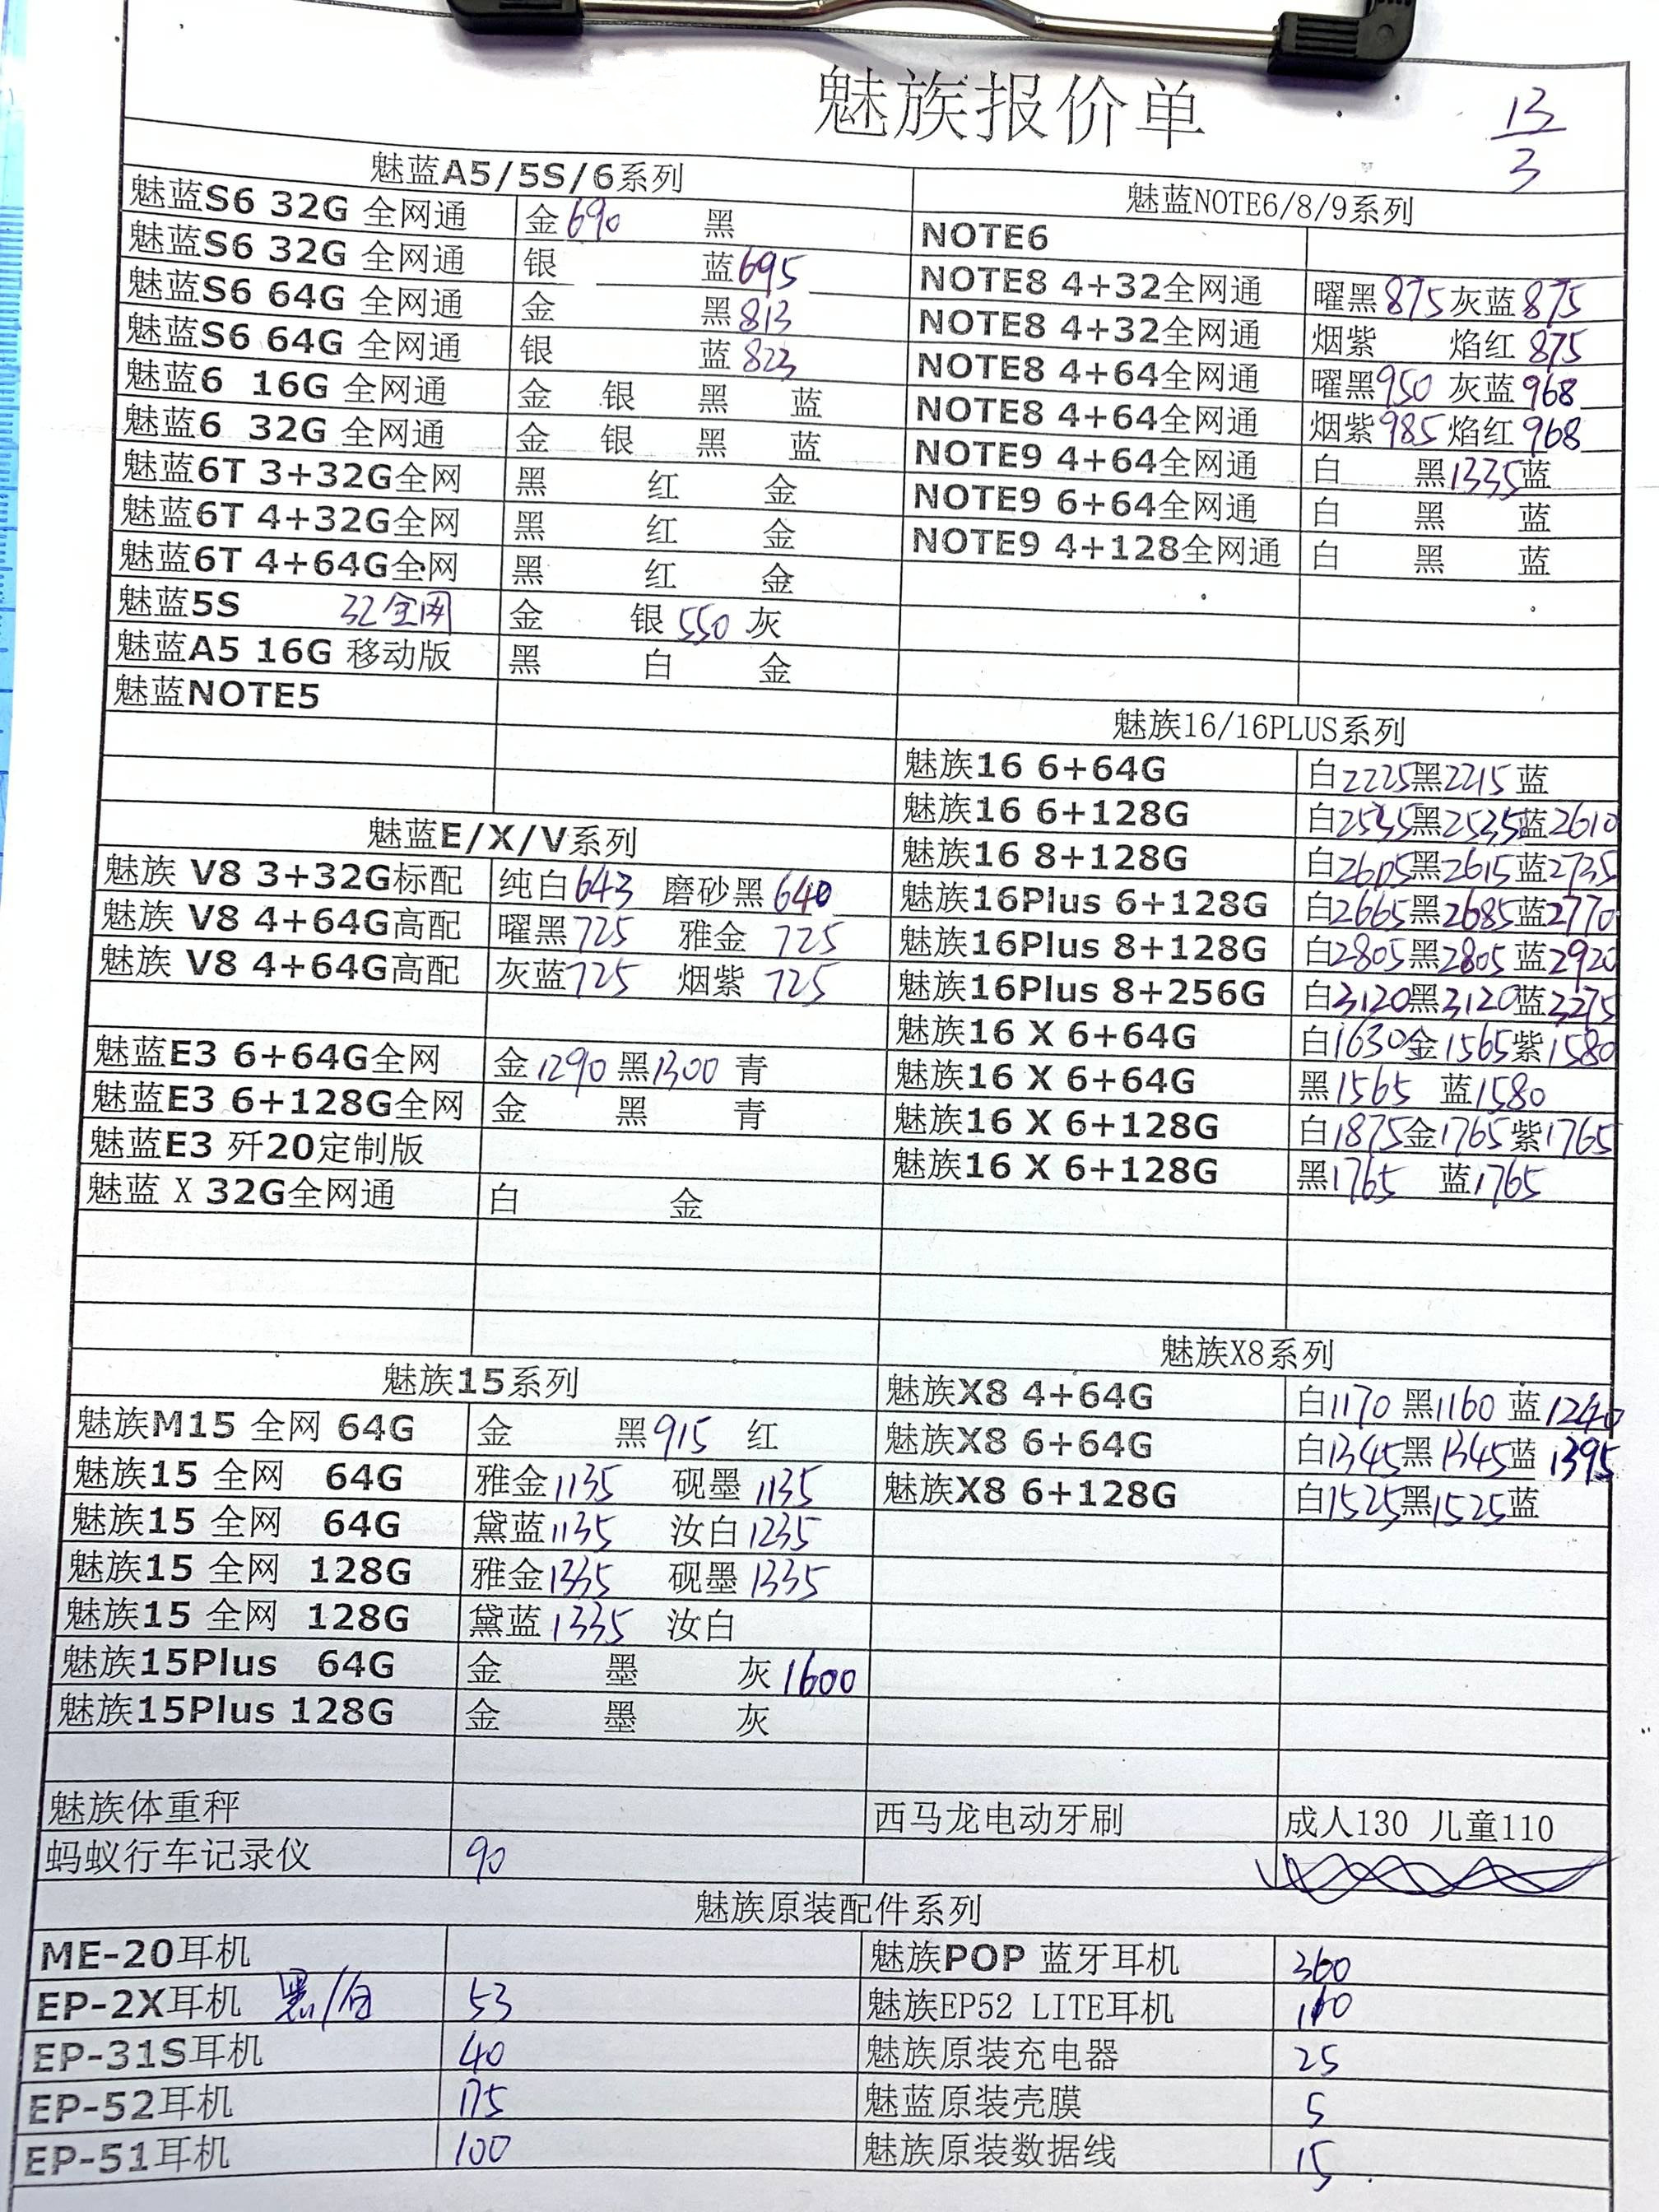 魅族报价单
13/3
魅蓝A5/5S/6系列
魅蓝S6 32G 全网通 金690 黑
魅蓝S6 32G 全网通 银 蓝695
魅蓝S6 64G 全网通 金 黑813
魅蓝S6 64G 全网通 银 蓝823
魅蓝6 16G 全网通 金 银 黑 蓝
魅蓝6 32G 全网通 金 银 黑 蓝
魅蓝6T 3+32G全网 黑 红 金
魅蓝6T 4+32G全网 黑 红 金
魅蓝6T 4+64G全网 黑 红 金
魅蓝5S 32全网 金 银550 灰
魅蓝A5 16G 移动版 黑 白 金
魅蓝NOTE5
魅蓝E/X/V系列
魅族 V8 3+32G标配 纯白643 磨砂黑640
魅族 V8 4+64G高配 曜黑725 雅金 725
魅族 V8 4+64G高配 灰蓝725 烟紫 725
魅蓝E3 6+64G全网 金1290 黑1300 青
魅蓝E3 6+128G全网 金 黑 青
魅蓝E3 歼20定制版
魅蓝 X 32G全网通 白 金
魅族15系列
魅族M15 全网 64G 金 黑915 红
魅族15 全网 64G 雅金1135 砚墨1135
魅族15 全网 64G 黛蓝1135 汝白1235
魅族15 全网 128G 雅金1335 砚墨1335
魅族15 全网 128G 黛蓝1335 汝白
魅族15Plus 64G 金 墨 灰1600
魅族15Plus 128G 金 墨 灰
魅族体重秤
蚂蚁行车记录仪 90
魅蓝NOTE6/8/9系列
NOTE6
NOTE8 4+32全网通 曜黑875灰蓝875
NOTE8 4+32全网通 烟紫 焰红875
NOTE8 4+64全网通 曜黑950 灰蓝968
NOTE8 4+64全网通 烟紫985焰红968
NOTE9 4+64全网通 白 黑1335蓝
NOTE9 6+64全网通 白 黑 蓝
NOTE9 4+128全网通 白 黑 蓝
魅族16/16PLUS系列
魅族16 6+64G 白2225黑2215 蓝
魅族16 6+128G 白2535黑2535蓝2610
魅族16 8+128G 白2605黑2615蓝2735
魅族16Plus 6+128G 白2665黑2685蓝2770
魅族16Plus 8+128G 白2805黑2805蓝2920
魅族16Plus 8+256G 白3120黑3120蓝3275
魅族16 X 6+64G 白1630金1565紫1580
魅族16 X 6+64G 黑1565 蓝1580
魅族16 X 6+128G 白1875金1765紫1765
魅族16 X 6+128G 黑1765 蓝1765
魅族X8系列
魅族X8 4+64G 白1170 黑1160 蓝1240
魅族X8 6+64G 白1345黑1345蓝1395
魅族X8 6+128G 白1525黑1525蓝
西马龙电动牙刷 成人130 儿童110
魅族原装配件系列
ME-20耳机
EP-2X耳机 黑/白 53
EP-31S耳机 40
EP-52耳机 175
EP-51耳机 100
魅族POP 蓝牙耳机 360
魅族EP52 LITE耳机
魅族原装充电器 25
魅蓝原装壳膜 5
魅族原装数据线 15